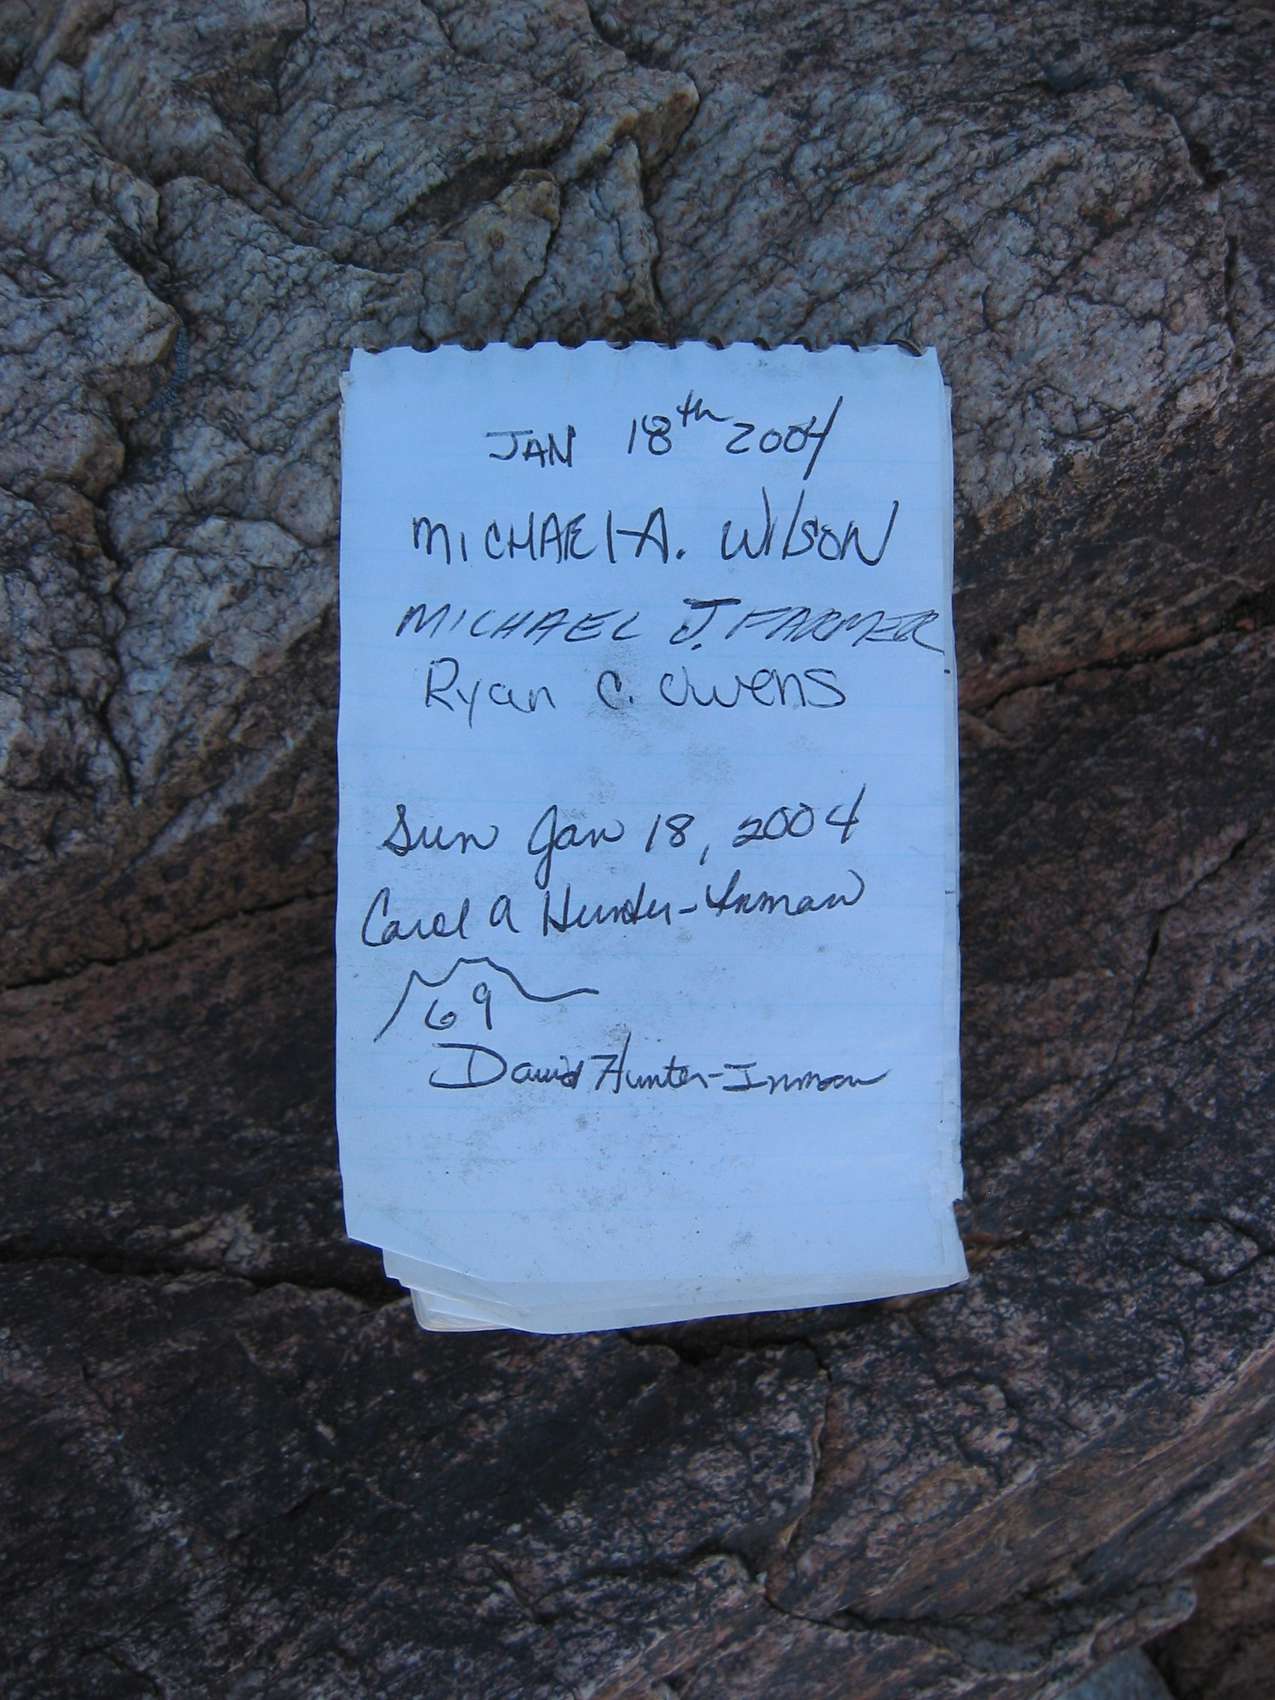 JAN 18th 2004
MICHAEL A. WilsoN
MICHAEL J. FARMER
Ryan C. Owens
Sun Jan 18, 2004
Carol A Hunter-Inman
69
David Hunter-Inman